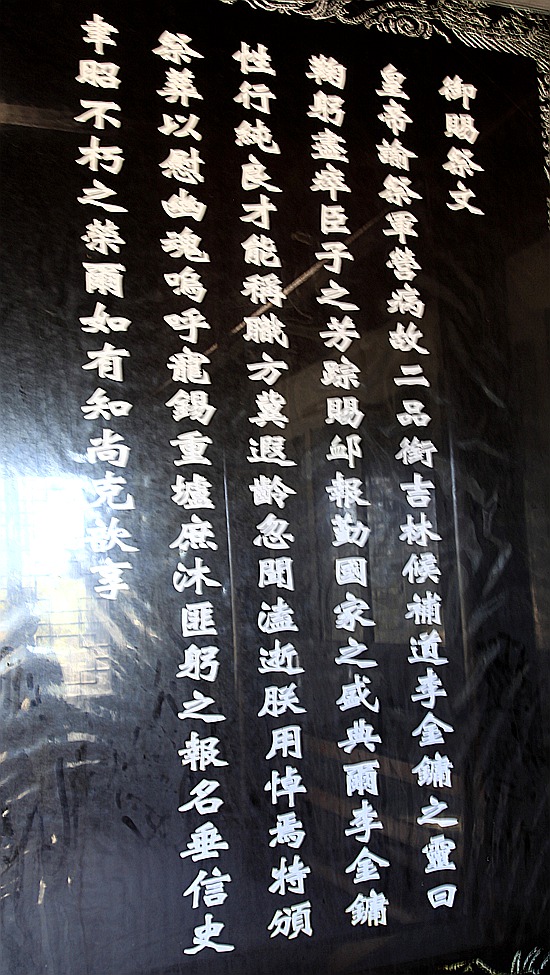 御賜祭文
皇帝諭祭軍營病故二品銜吉林候補道李金鏞之靈曰
鞠躬盡瘁臣子之芳踪賜卹報勤國家之盛典爾李金鏞
性行純良才能稱職方冀遐齡忽聞溘逝朕用悼焉特頒
祭葬以慰幽魂嗚呼寵錫重壚庶沐匪躬之報名垂信史
聿昭不朽之榮爾如有知尚克歆享